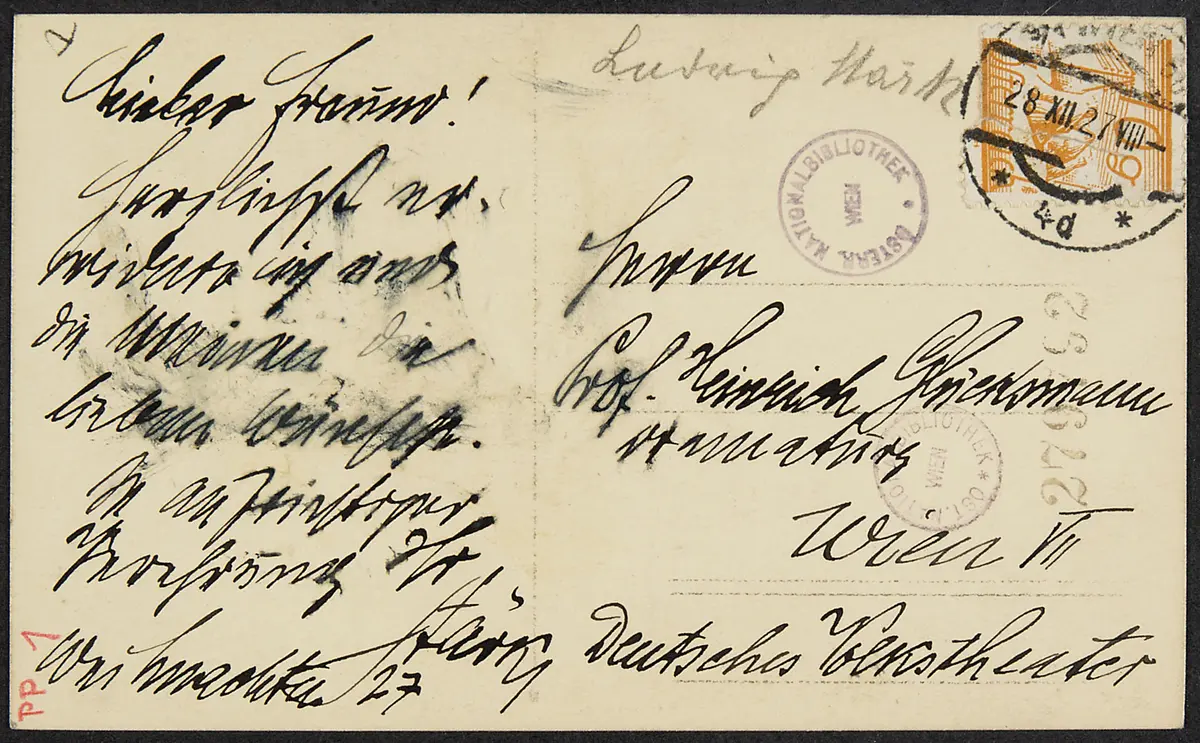 Lieber Freund!
Herzlichst er-
widere ich und
die Meinen die
lieben Wünsche.
In aufrichtiger
Verehrung Ihr
Stärk
Weihnachten 27
PP 1
Ludwig Stärk
28 XII.27 VIII
* 4d *
ÖSTERR. NATIONALBIBLIOTHEK
WIEN
Herrn
Prof. Heinrich Glücksmann
Dramaturg
Wien VII
Deutsches Volkstheater
WIEN